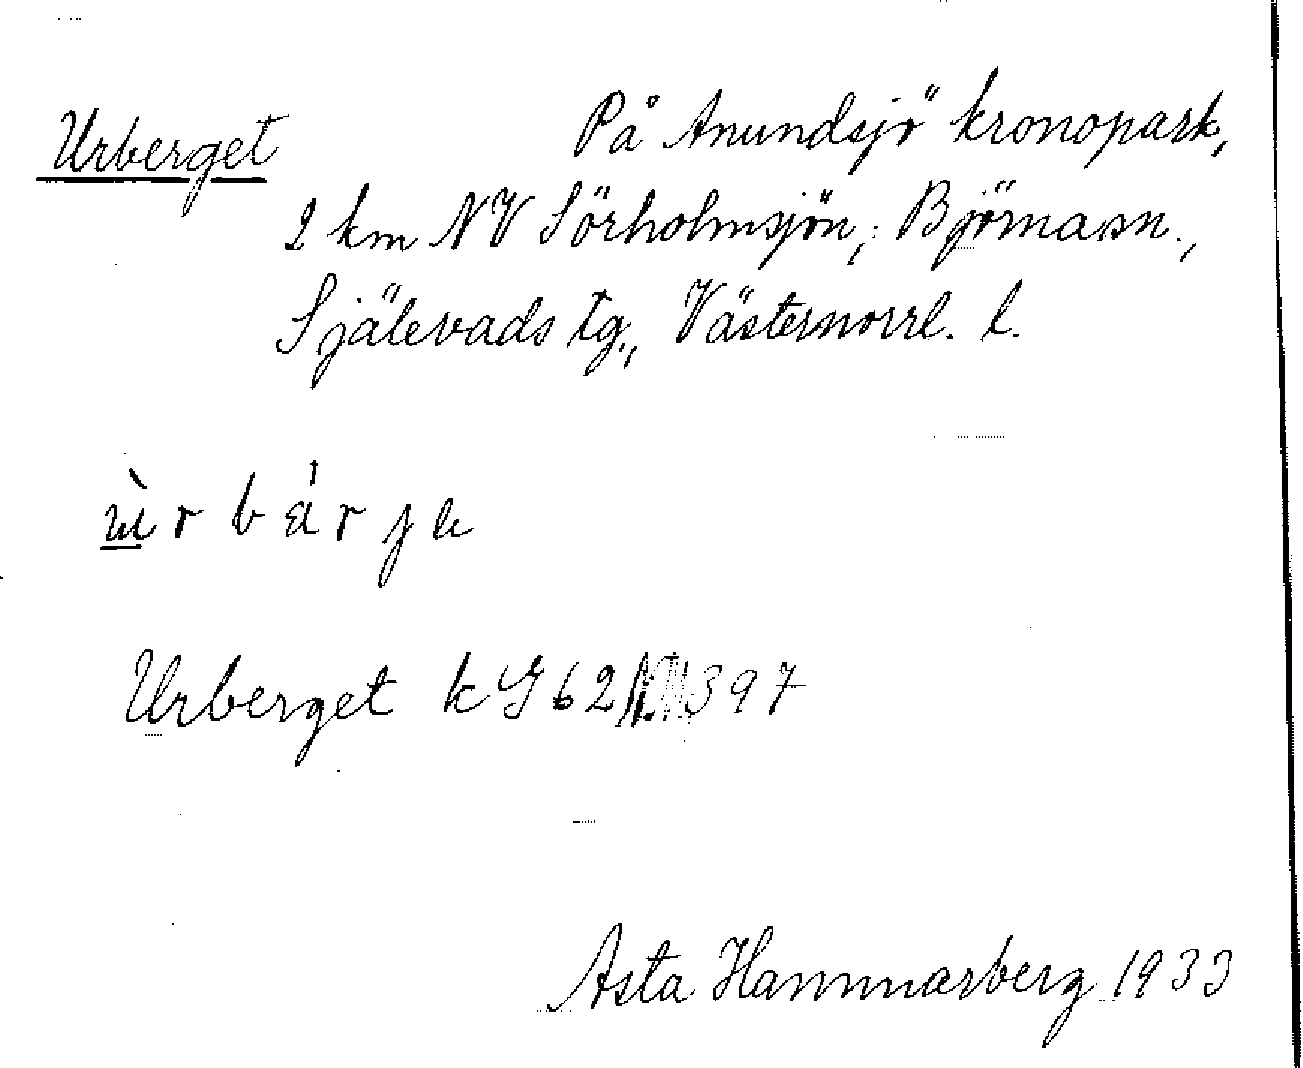 Urberget
På Anundsjö kronopark,
2 km NV Sörholmsjön, Björna sn.,
Själevads tg., Västernorrl. l.
ùrbárje
Urberget kG62 397
Asta Hammarberg 1933